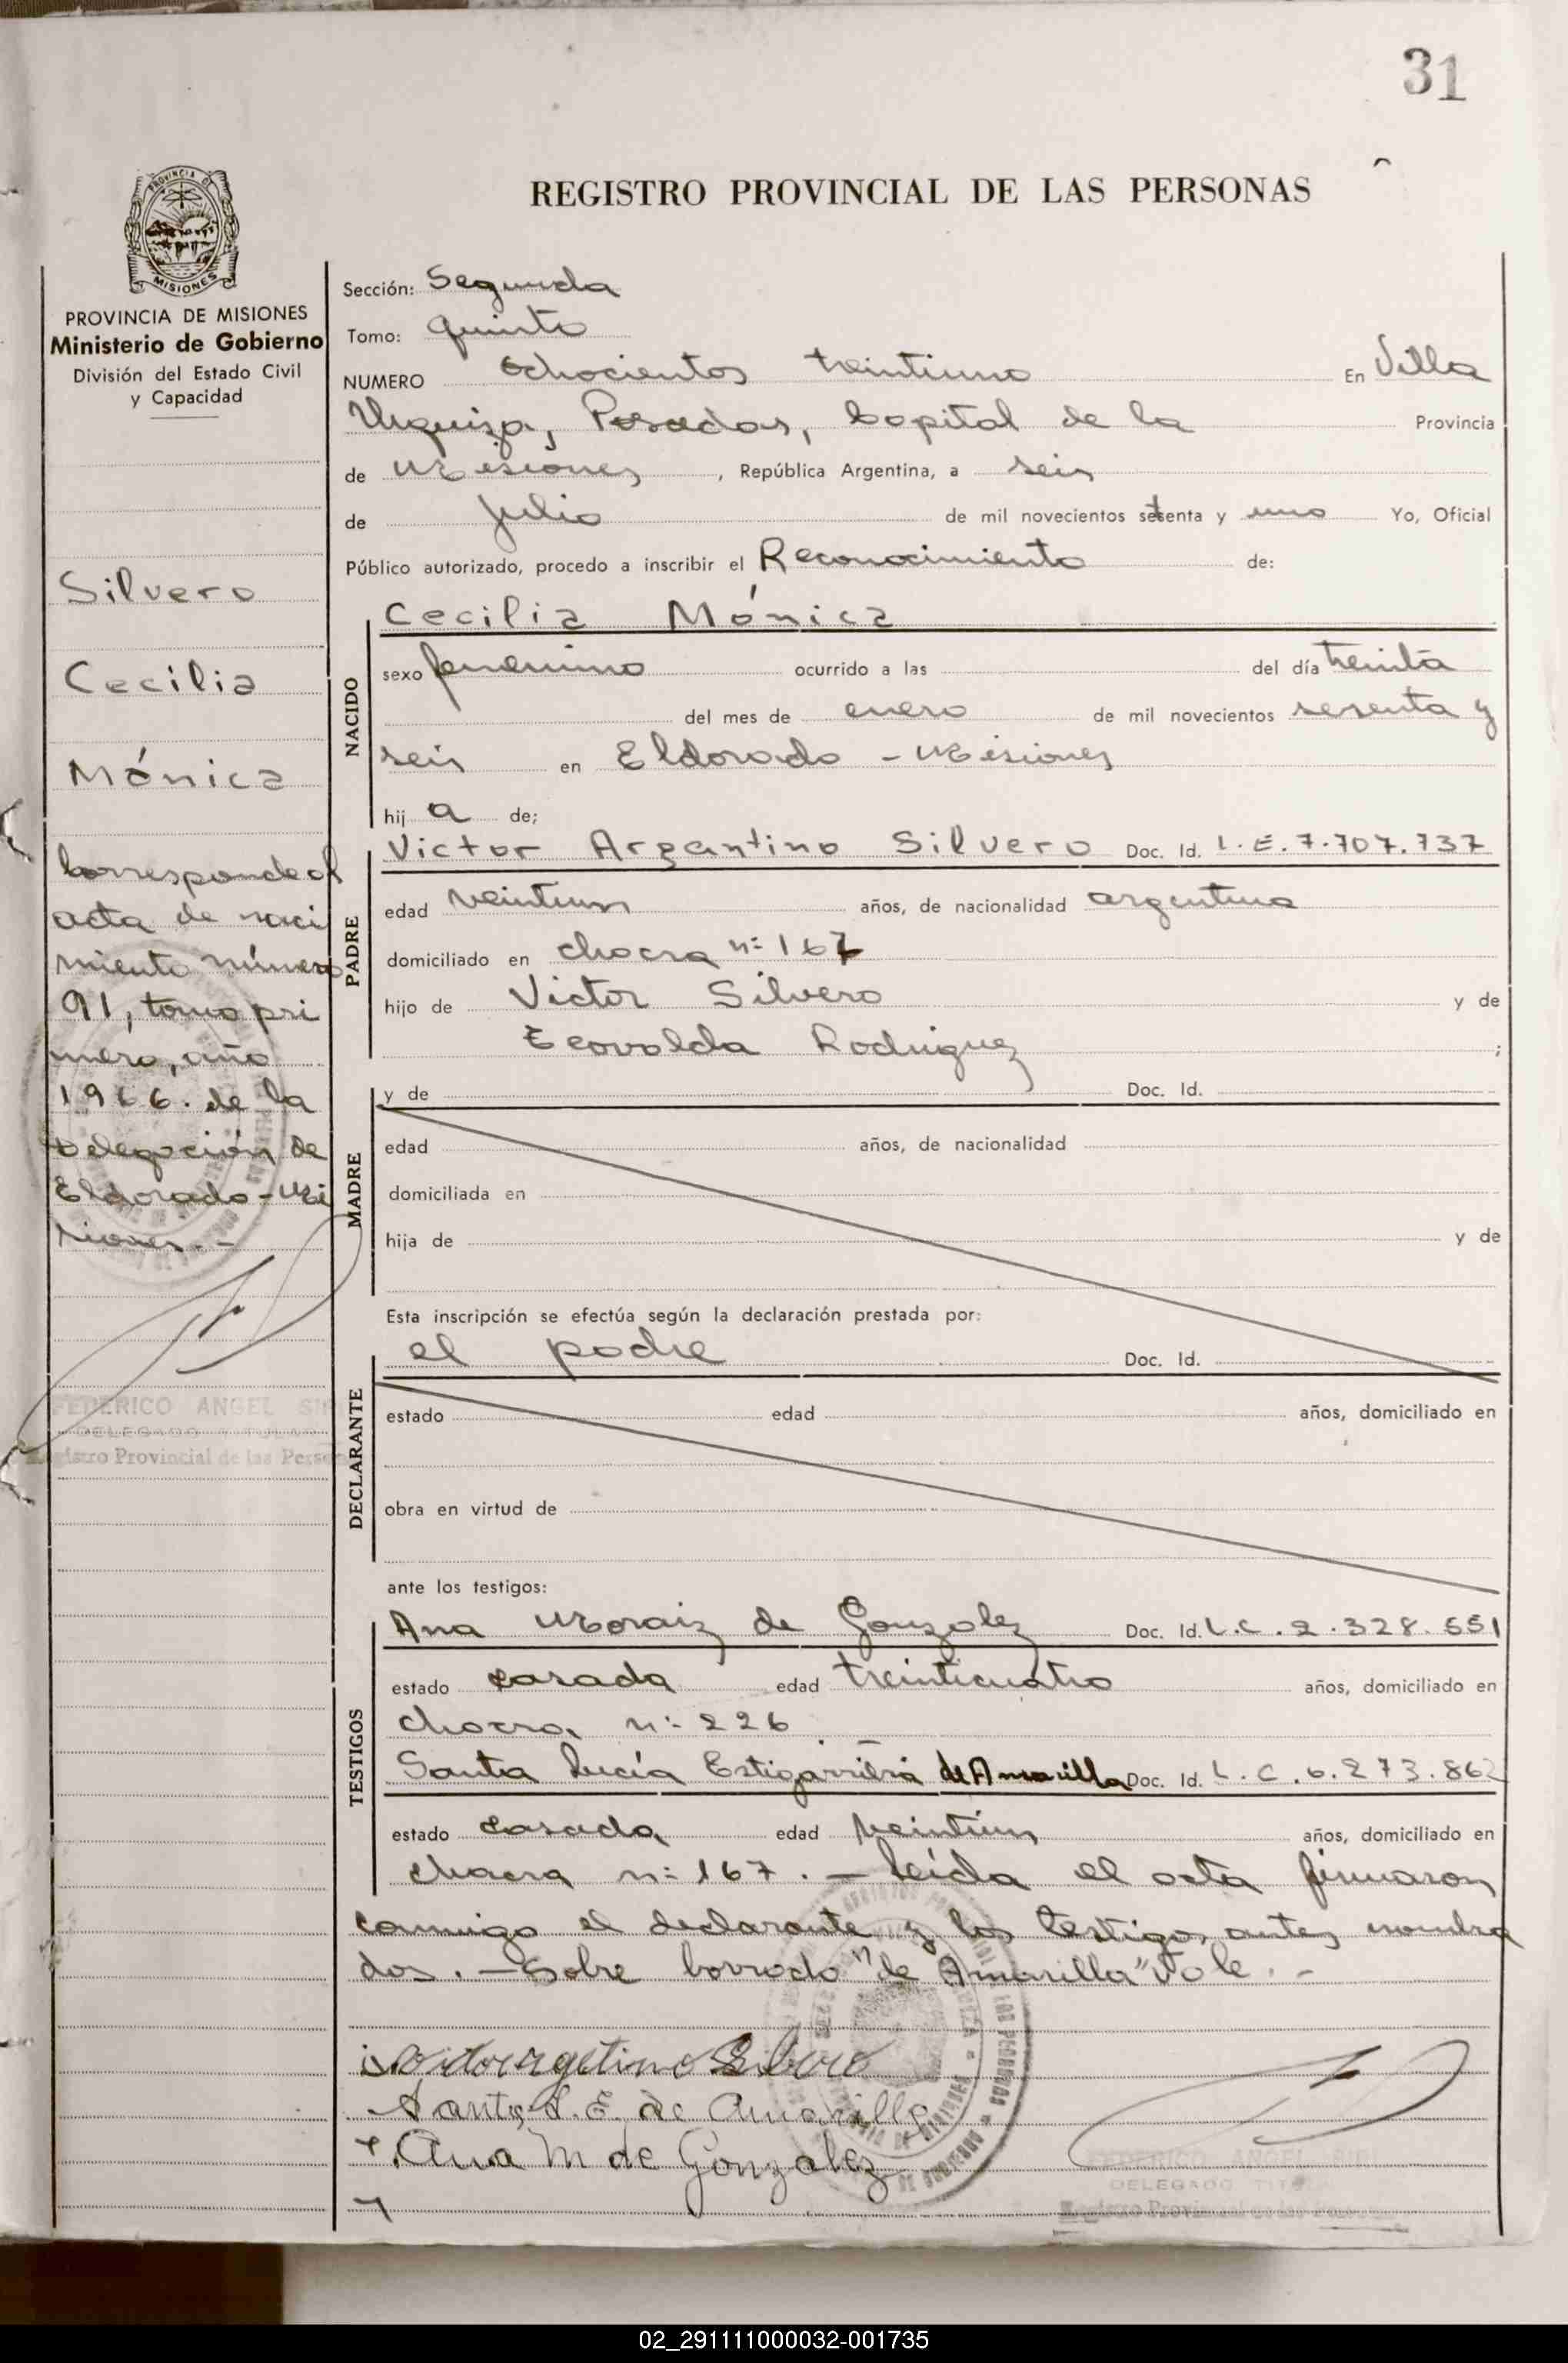 31
PROVINCIA DE
MISIONES
REGISTRO PROVINCIAL DE LAS PERSONAS
PROVINCIA DE MISIONES
Ministerio de Gobierno
División del Estado Civil
y Capacidad
Silvero
Cecilia
Mónica
Corresponde al
acta de naci
miento número
91, tomo pri
mero, año
1966. de la
Delegación de
Eldorado - Mi
siones. -
FEDERICO ANGEL SIRI
DELEGADO TITULAR
Registro Provincial de las Personas
Sección: Segunda
Tomo: quinto
NUMERO ochocientos treintiuno En Villa
Urquiza, Posadas, Capital de la Provincia
de Misiones, República Argentina, a seis
de julio de mil novecientos setenta y uno Yo, Oficial
Público autorizado, procedo a inscribir el Reconocimiento de:
NACIDO
Cecilia Mónica
sexo femenino ocurrido a las del día treinta
del mes de enero de mil novecientos sesenta y
seis en Eldorado - Misiones
hij a de;
PADRE
Victor Argentino Silvero Doc. Id. L.E. 7.707.737
edad veintiun años, de nacionalidad argentina
domiciliado en chacra nº 167
hijo de Victor Silvero y de
Rodriguez ;
MADRE
y de Doc. Id.
edad años, de nacionalidad
domiciliada en
hija de y de
Esta inscripción se efectúa según la declaración prestada por:
DECLARANTE
el padre Doc. Id.
estado edad años, domiciliado en
obra en virtud de
ante los testigos:
TESTIGOS
Ana Moraiz de Gonzalez Doc. Id. L.C. 2.328.551
estado casada edad treinticuatro años, domiciliado en
chacra nº 226
Santa Lucía Estigarribia de Amarilla Doc. Id. L.C. 6.273.862
estado casada edad veintiún años, domiciliado en
chacra nº 167. - Leída el acta firmaron
conmigo el declarante y los testigos antes nombra
dos. - Sobre borrado "de Amarilla" Vale. -
Santa L. E. de Amarilla
Ana M de Gonzalez
FEDERICO ANGEL SIRI
DELEGADO TITULAR
Registro Provincial de las Personas
02_291111000032-001735